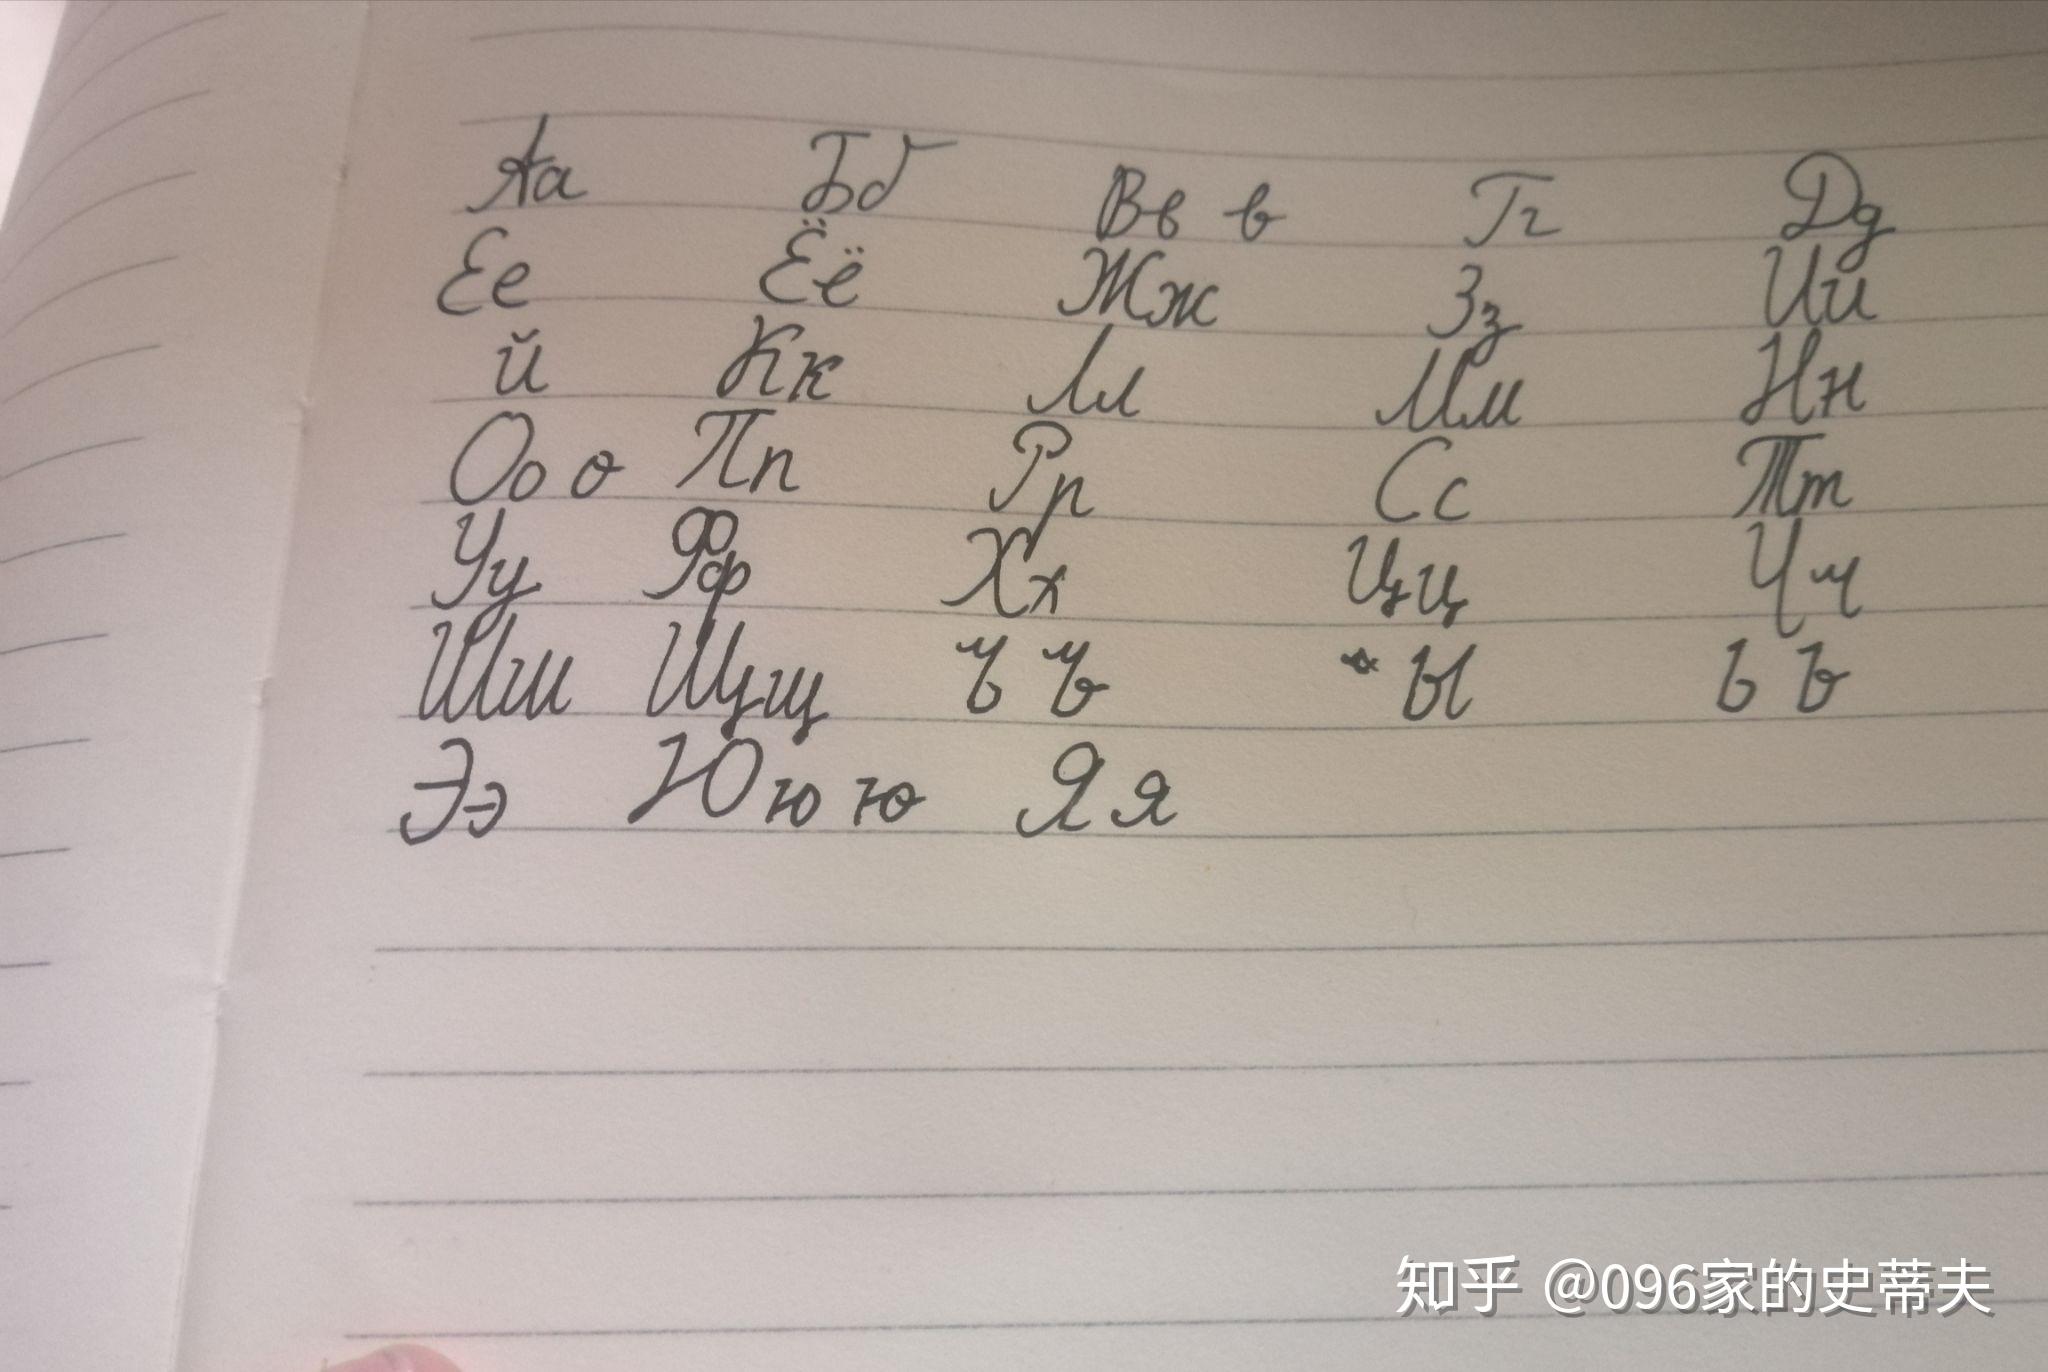 Аа Бб Вв в Гг Дд
Ее Ёё Жж Зз Ии
й Кк Лл Мм Нн
Оо о Пп Рр Сс Тт
Уу Фф Хх Цц Чч
Шш Щщ ъ ъ ы ь ь
Ээ Юю ю Яя
知乎 @096家的史蒂夫